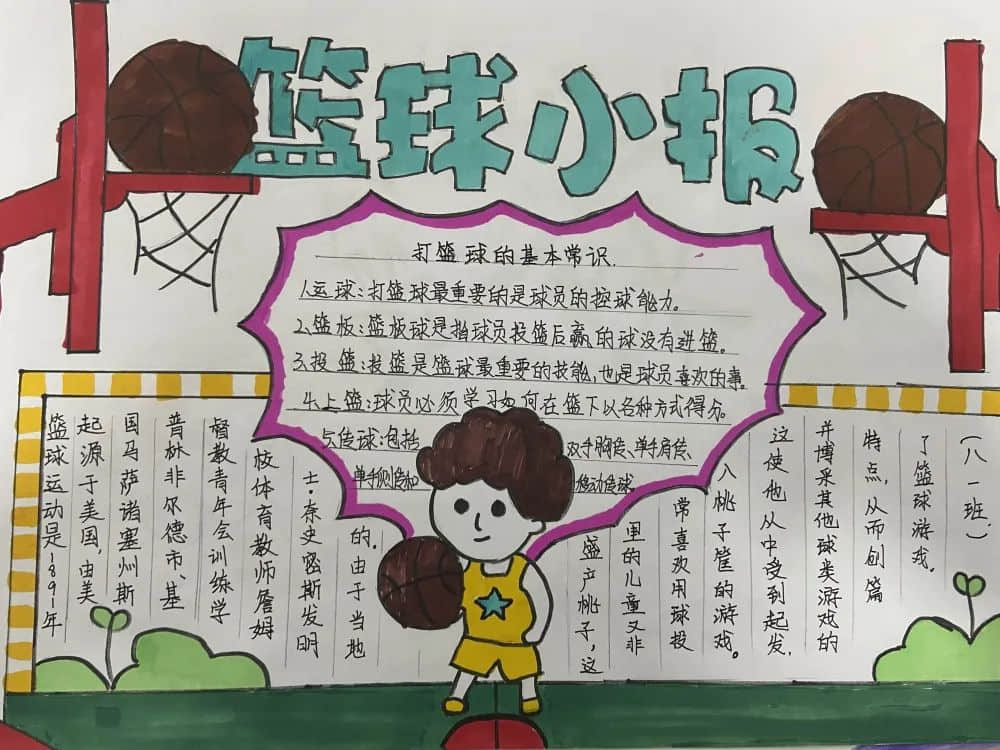 篮球小报
打篮球的基本常识
1.运球:打篮球最重要的是球员的控球能力。
2.篮板:篮板球是指球员投篮后赢的球没有进篮。
3.投篮:投篮是篮球最重要的技能,也是球员喜欢的事。
4.上篮:球员必须学习如何在篮下以各种方式得分。
5.传球:包括 双手胸传、单手肩传、
单手侧传和 移动传球。
篮球运动是1891年
起源于美国,由美
国马萨诸塞州斯
普林非尔德市、基
督教青年会训练学
校体育教师詹姆
士·奈史密斯发明
的。由于当地
盛产桃子,这
里的儿童又非
常喜欢用球投
入桃子筐的游戏。
这使他从中受到起发,
并博采其他球类游戏的
特点,从而创篇
了篮球游戏。
(八一班)